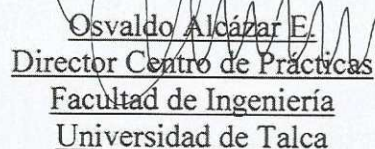 Osvaldo Alcázar E.
Director Centro de Prácticas
Facultad de Ingeniería
Universidad de Talca